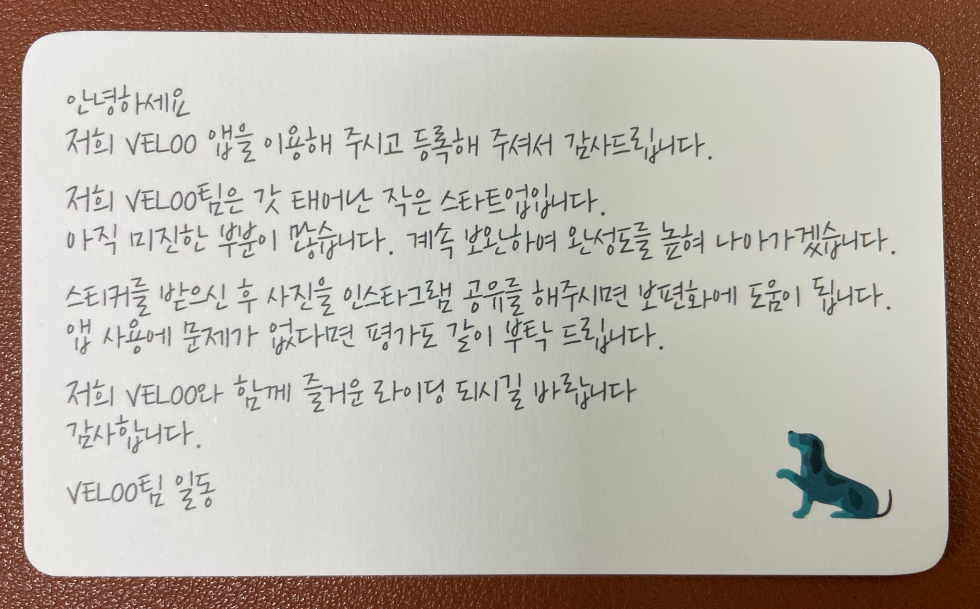 안녕하세요
저희 VELOO 앱을 이용해 주시고 등록해 주셔서 감사드립니다.
저희 VELOO팀은 갓 태어난 작은 스타트업입니다.
아직 미진한 부분이 많습니다. 계속 보완하여 완성도를 높혀 나아가겠습니다.
스티커를 받으신 후 사진을 인스타그램 공유를 해주시면 보편화에 도움이 됩니다.
앱 사용에 문제가 없다면 평가도 같이 부탁 드립니다.
저희 VELOO와 함께 즐거운 라이딩 되시길 바랍니다
감사합니다.
VELOO팀 일동